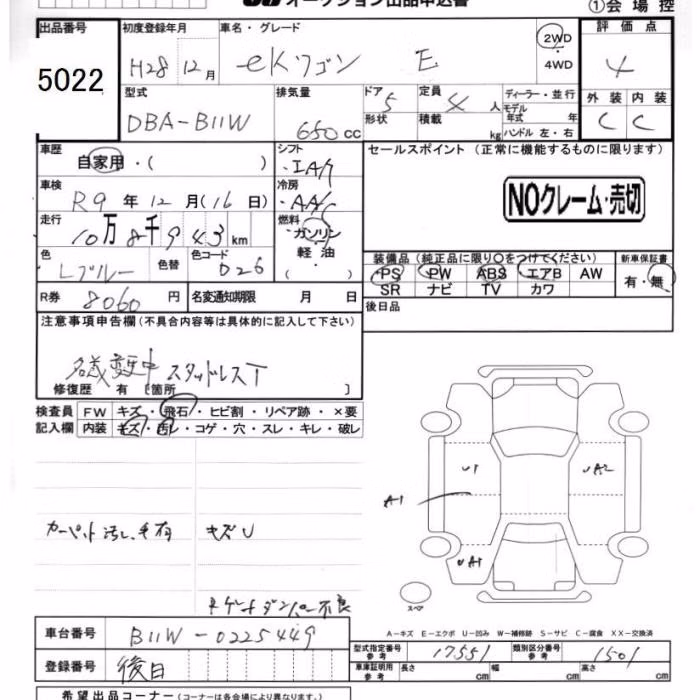 オークション出品申込書
①会場控
出品番号
5022
初度登録年月
H28 12月
車名・グレード
eKワゴン E
2WD
・
4WD
評価点
4
外装 内装
C C
型式
DBA-B11W
排気量
650cc
ドア 5
形状
定員 4人
積載 kg
ディーラー・並行
モデル
年式 年
ハンドル 左・右
車歴
自家用・( )
シフト
IA/
セールスポイント (正常に機能するものに限ります)
NOクレーム・売切
車検
R9年12月(16日)
冷房
AAC
走行
10万8千943km
燃料
ガソリン
軽油
・( )
色
Lブルー
色替
色コード
D26
装備品 (純正品に限り○をつけてください)
新車保証書
PS PW ABS エアB AW
SR ナビ TV カワ
有・無
R券 8060円
名変通知期限 月 日
後日品
注意事項申告欄 (不具合内容等は具体的に記入して下さい)
名義変更中 スタッドレスT
修復歴 有 [箇所 ]
検査員 FW キズ・飛石・ヒビ割・リペア跡・×要
記入欄 内装 キズ・汚レ・コゲ・穴・スレ・キレ・破レ
U1
UA2
A1
UA1
カーペット汚し、毛有
キズU
ゲートダンパー不良
スペア
A-キズ E-エクボ U-凹み W-補修跡 S-サビ C-腐食 XX-交換済
車台番号
B11W-0225449
型式指定番号
参考
17551
類別区分番号
参考
1501
登録番号
後日
車庫証明用
参考
長さ 幅 高さ
希望出品コーナー (コーナーは各会場により異なります。)